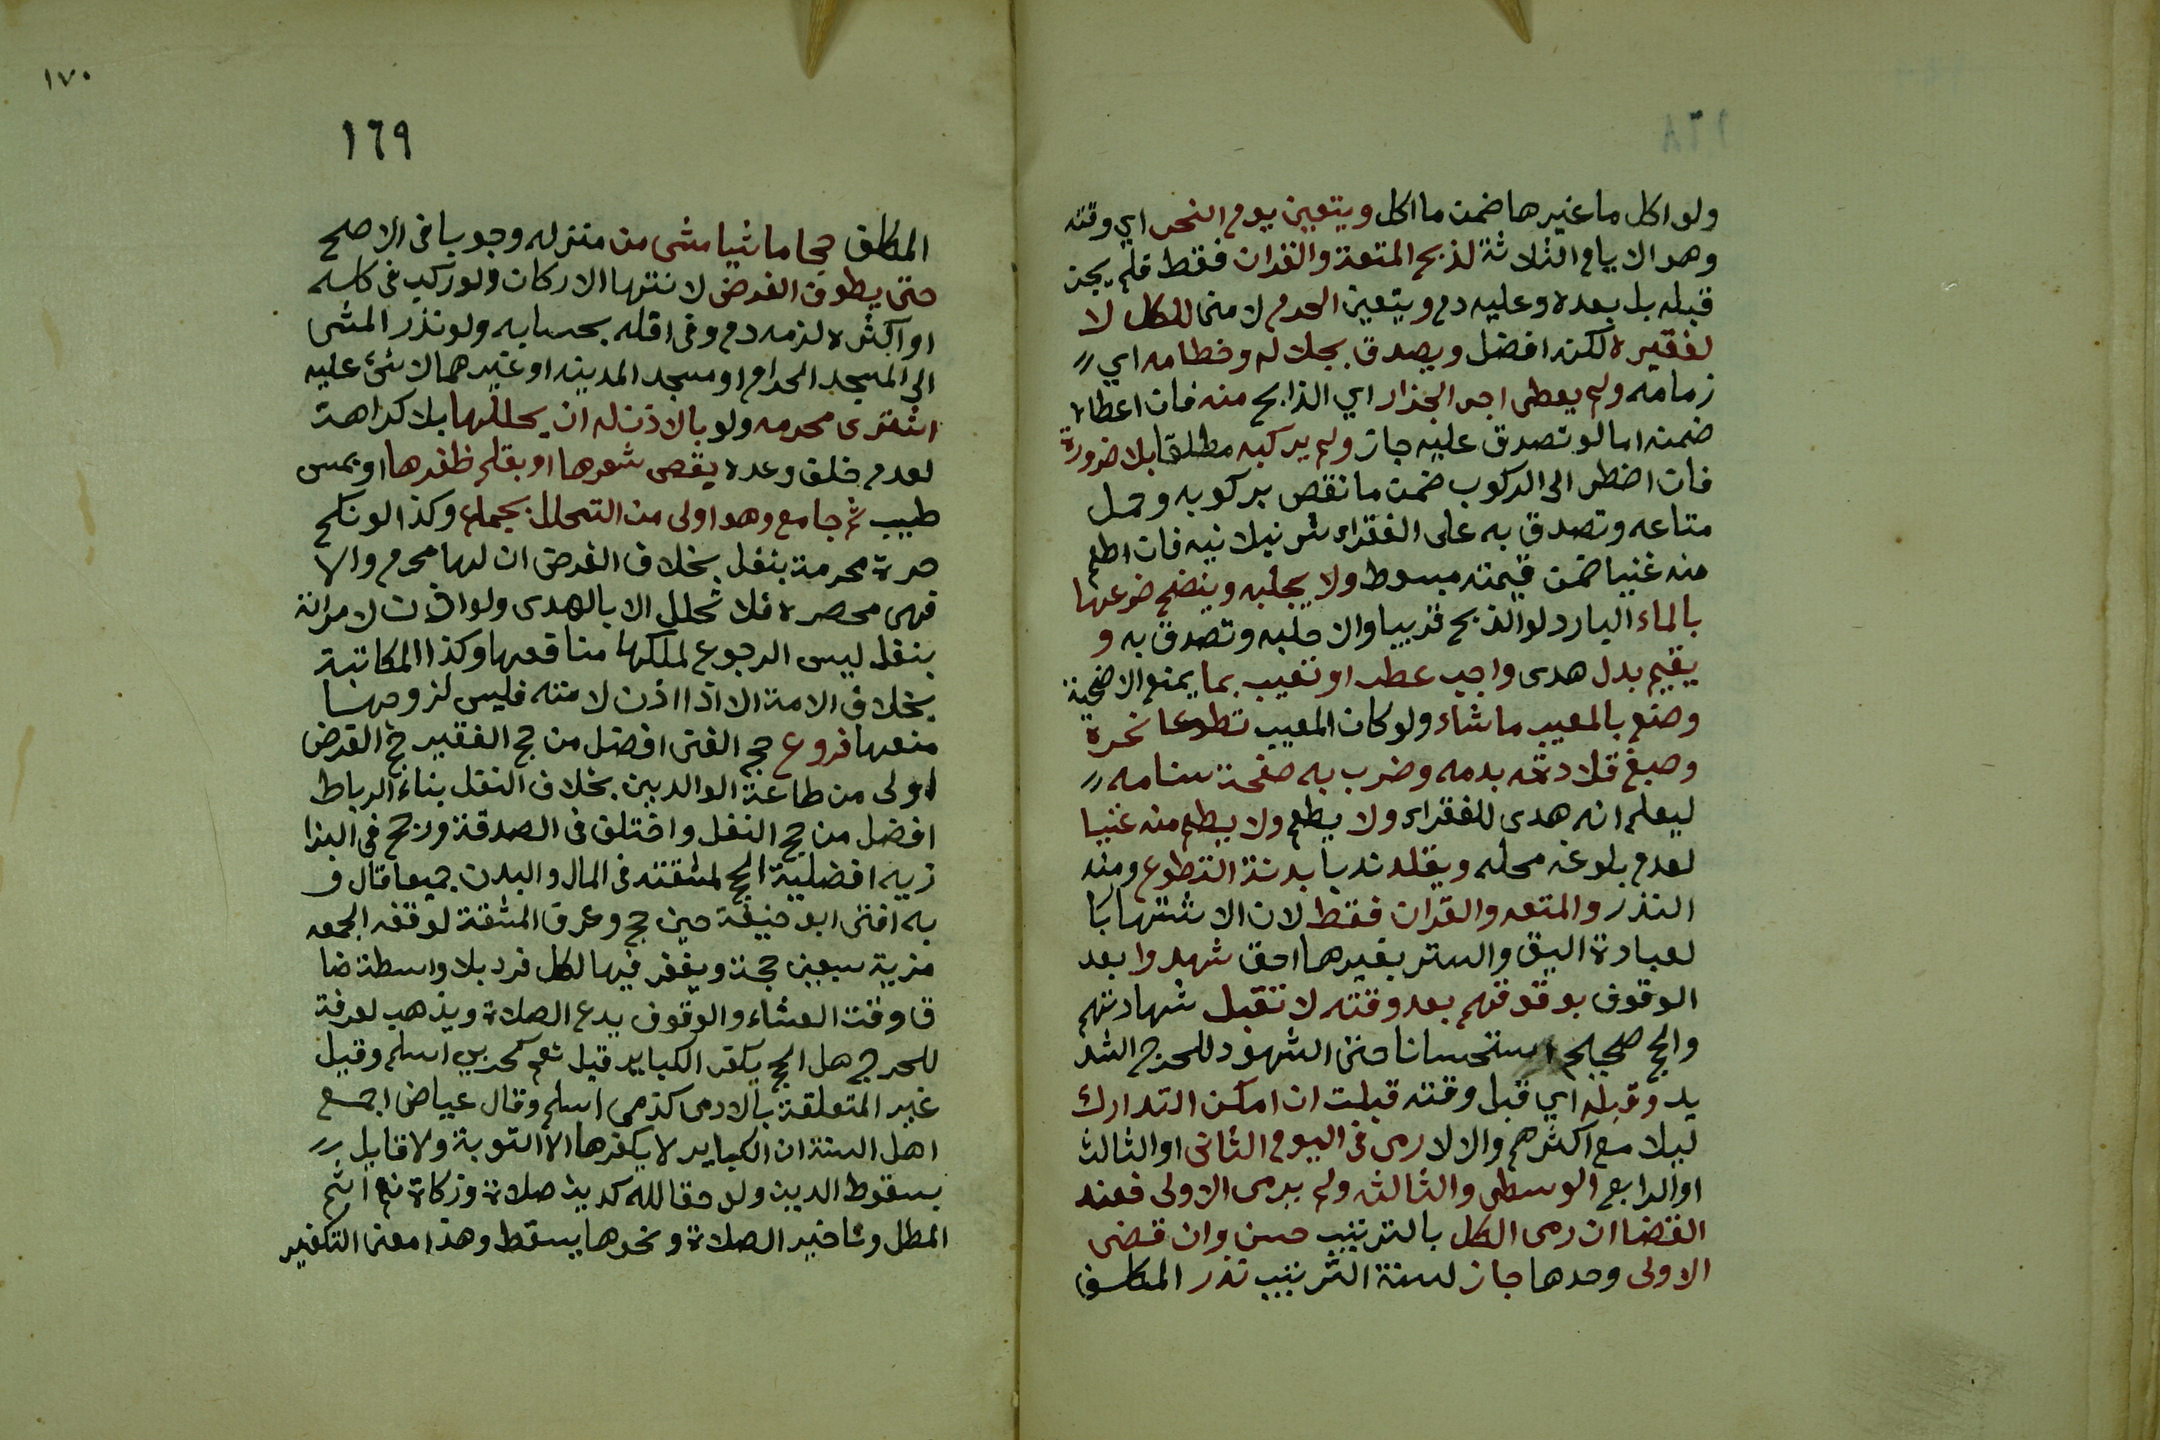 ولو اكل ما غيرها ضمن ما اكل ويتعين يوم النحر اي وقته
وهو الايام الثلاثة لذبح المتعة والقران فقط فلم يجز
قبله بل بعده وعليه دم ويتعين الحرم لا منى للكل لا
لفقيره لكنه افضل ويصدق بجلاله وخطامه اي
زمامه ولم يعطى اجر الجزار اي الذابح منه فان اعطاه
ضمنه اما لو تصدق عليه جاز ولم يركبه مطلقا بلا ضرورة
فان اضطر الى الركوب ضمن ما نقص بركوبه وحمل
متاعه وتصدق به على الفقراء شرنبلانيه فان اطعم
منه غنيا ضمن قيمته مبسوط ولا يحلبه وينضح ضرعها
بالماء البارد لو الذبح قريبا والا حلبه وتصدق به و
يقيم بدل هدى واجب عطب او تعيب بما يمنع الاضحية
وصنع بالمعيب ما شاء ولو كان المعيب تطوعا نحره
وصبغ قلادته بدمه وضرب به صفحة سنامه
ليعلم انه هدى للفقراء ولا يطعم ولا يطعم منه غنيا
لعدم بلوغه محله ويقلد ندبا بدنة التطوع ومنه
النذر والمتعه والقران فقط لان الاشتهار با
لعبادة اليق والستر بغيرها احق شهدوا بعد
الوقوف بوقوفهم بعد وقته لا تقبل شهادتهم
والحج صحيح استحسانا حتى الشهود للحرج الشد
يد وقبله اي قبل وقته قبلت ان امكن التدارك
ليلا مع اكثرهم والا لا رمى فى اليوم الثانى او الثالث
او الرابع الوسطى والثالثه ولم يرمى الاولى فعند
القضا ان رمى الكل بالترتيب حسن وان قضى
الاولى وحدها جاز لسنة الترتيب نذر المكلف
١٧٠
١٦٩
المكلف حجا ماشيا مشى من منزله وجوبا فى الاصح
حتى يطوف الفرض لانتها الاركان ولو ركب فى كله
او اكثره لزمه دم وفى اقله بحسابه ولو نذر المشى
الى المسجد الحرام او مسجد المدينه او غيرهما لا شئ عليه
اشترى محرمه ولو بالاذن له ان يحللها بلا كراهة
لعدم خلف وعده يقص شعرها او بقلم ظفرها او بمس
طيب ثم جامع وهو اولى من التحلل بجماع وكذا لو نكح
حرة محرمة بنفل بخلاف الفرض ان لها محرم والا
فهى محصره فلا تحلل الا بالهدى ولو اذن لامرانة
بنفل ليس الرجوع لملكها منافعها وكذا المكاتبة
بخلاف الامة الا اذا اذن لامته فليس لزوجها
منعها فروع حج الغنى افضل من حج الفقير حج الفرض
اولى من طاعة الوالدين بخلاف النفل بناء الرباط
افضل من حج النفل واختلف فى الصدقة ورجح فى البزا
زيه افضلية الحج لمشقته فى المال والبدن جميعا قال و
به افتى ابو حنيفة حين حج وعرف المشقة لوقفه الجمعه
مزية سبعين حجة ويغفر فيها لكل فرد بلا واسطة ضا
ق وقت العشاء والوقوف يدع الصلاة ويذهب لعرفة
للحرج هل الحج يكفر الكباير قيل نعم كحربي اسلم وقيل
غير المتعلقة بالادمى كذمى اسلم وقال عياض اجمع
اهل السنة ان الكباير لا يكفرها الا التوبة ولا قايل
بسقوط الدين ولو حقا لله كدين صلاة وزكاة نعم اثم
المطل وتاخير الصلاة ونحوها يسقط وهذا معنى التكفير